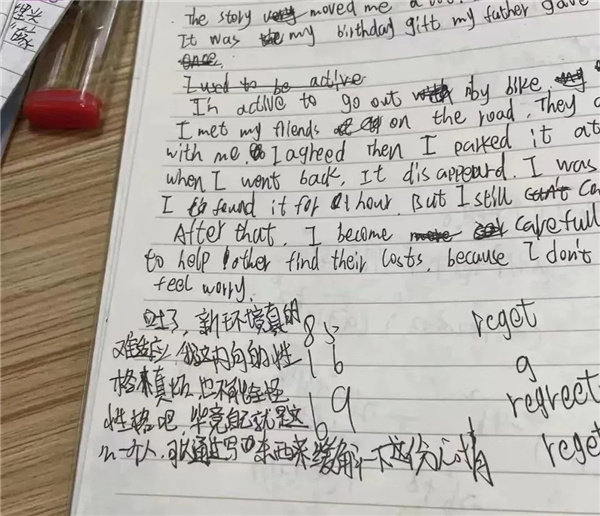 The story moved me a
It was my birthday gift my father gave
once.
I used to be active
I'm active to go out by bike.
I met my friends on the road. They
with me. I agreed then I parked it at
when I went back, It disappeard. I was
I found it for 1 hour. But I still can't
After that, I become more carefull
to help other find their costs, because I don't
feel worry.
吐了，新环境真的
难适应，我这内向的性
格真坏，也不能全怪
性格吧，毕竟自己就是这
么一个人，可以通过写东西来缓解一下这份心情
85
16
19
6
reget
g
regreet
reget